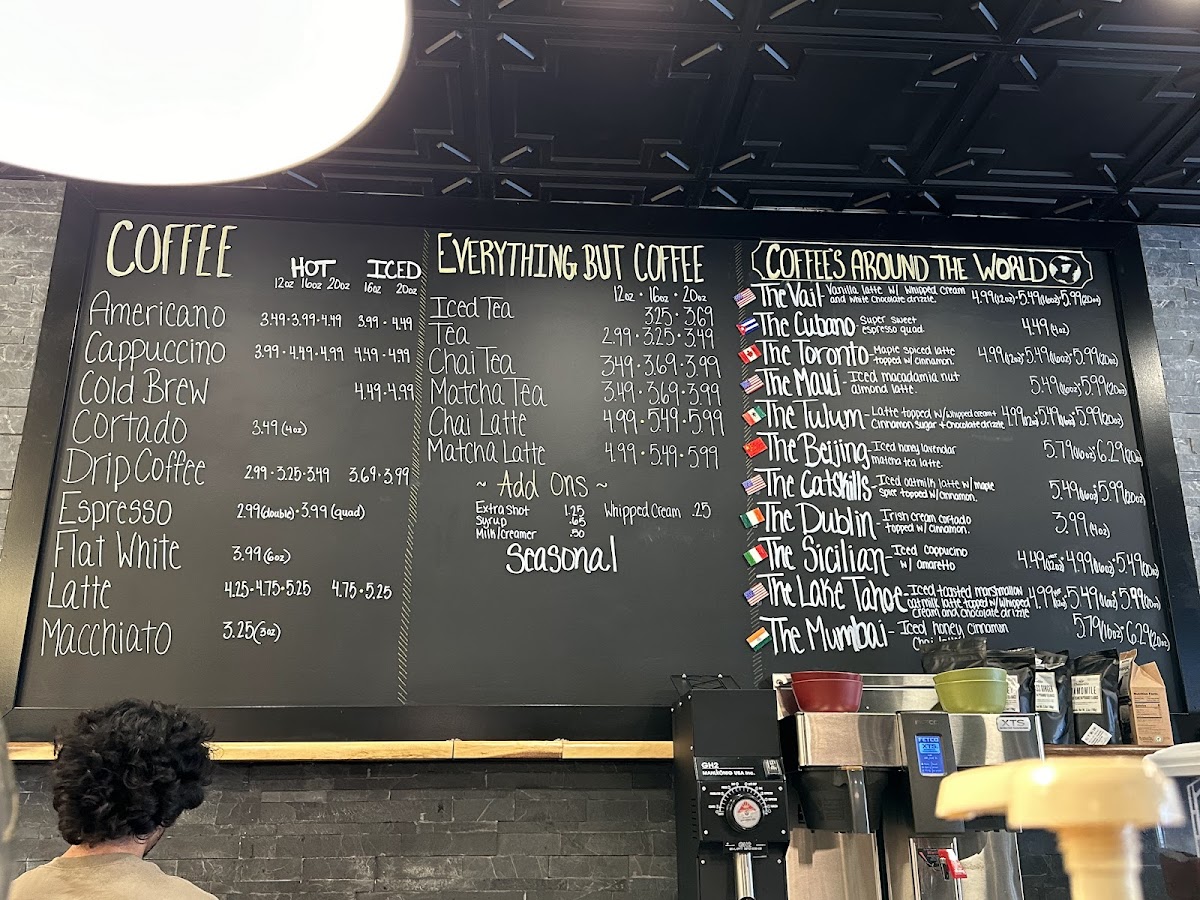 COFFEE
HOT ICED
12oz 16oz 20oz 16oz 20oz
Americano 3.49 • 3.99 • 4.49 3.99 • 4.49
Cappuccino 3.99 • 4.49 • 4.99 4.49 • 4.99
Cold Brew 4.49 • 4.99
Cortado 3.49 (4oz)
Drip Coffee 2.99 • 3.25 • 3.49 3.69 • 3.99
Espresso 2.99 (double) • 3.99 (quad)
Flat White 3.99 (6oz)
Latte 4.25 • 4.75 • 5.25 4.75 • 5.25
Macchiato 3.25 (3oz)
EVERYTHING BUT COFFEE
12oz • 16oz • 20oz
Iced Tea 3.25 • 3.69
Tea 2.99 • 3.25 • 3.49
Chai Tea 3.49 • 3.69 • 3.99
Matcha Tea 3.49 • 3.69 • 3.99
Chai Latte 4.99 • 5.49 • 5.99
Matcha Latte 4.99 • 5.49 • 5.99
~ Add Ons ~
Extra Shot 1.25 Whipped Cream .25
Syrup .65
Milk/Creamer .50
Seasonal
COFFEE'S AROUND THE WORLD
The Vail - Vanilla latte w/ whipped cream
and white chocolate drizzle. 4.99 (12oz) • 5.49 (16oz) • 5.99 (20oz)
The Cubano - Super sweet
espresso quad 4.49 (4oz)
The Toronto - Maple spiced latte
topped w/ cinnamon. 4.99 (12oz) • 5.49 (16oz) • 5.99 (20oz)
The Maui - Iced macadamia nut
almond latte. 5.49 (16oz) • 5.99 (20oz)
The Tulum - Latte topped w/ whipped cream +
Cinnamon Sugar + chocolate drizzle 4.99 (12oz) • 5.49 (16oz) • 5.99 (20oz)
The Beijing - Iced honey lavendar
matcha tea latte. 5.79 (16oz) • 6.29 (20oz)
The Catskills - Iced oatmilk latte w/ maple
spice topped w/ cinnamon. 5.49 (16oz) • 5.99 (20oz)
The Dublin - Irish cream cortado
topped w/ cinnamon. 3.99 (4oz)
The Sicilian - Iced cappucino
w/ amaretto 4.49 (12oz) • 4.99 (16oz) • 5.49 (20oz)
The Lake Tahoe - Iced toasted marshmallow
oatmilk latte topped w/ whipped
cream and chocolate drizzle 4.99 • 5.49 (16oz) • 5.99 (20oz)
The Mumbai - Iced honey cinnamon
chai 5.79 (16oz) • 6.29 (20oz)
GH2
MAHLKÖNIG USA Inc.
GH2
FETCO
XTS
XTS
GINGER
CHAMOMILE